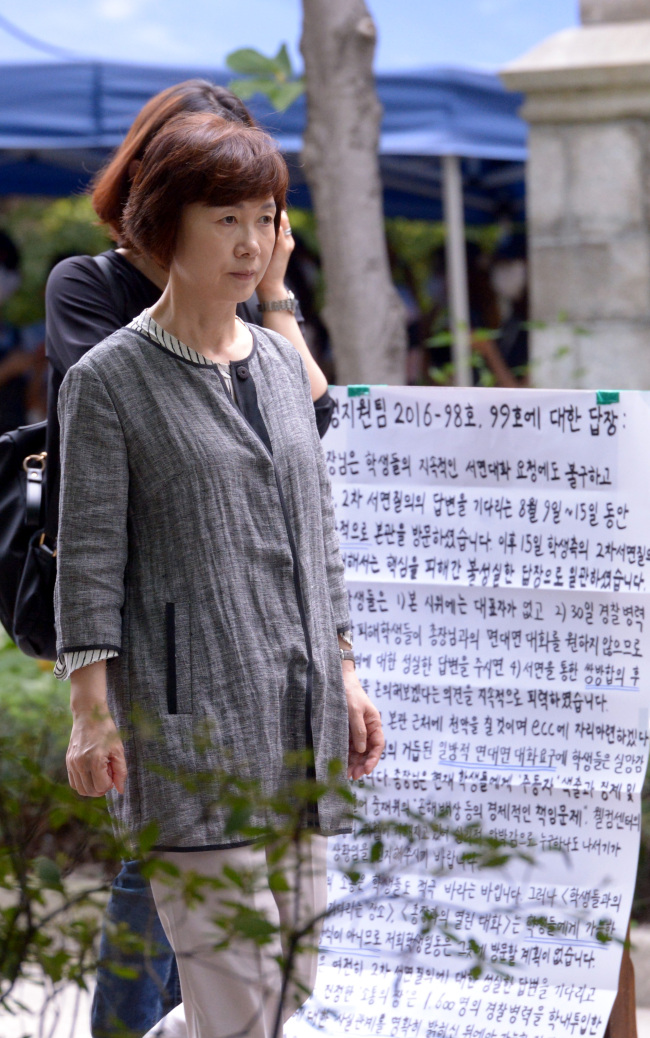 지원팀 2016-98호, 99호에 대한 답장:
장님은 학생들의 지속적인 서면대화 요청에도 불구하고
2차 서면질의의 답변을 기다리는 8월 9일~15일 동안
적으로 본관을 방문하였습니다. 이후 15일 학생측의 2차서면질의
해서는 핵심을 피해간 불성실한 답장으로 일관하였습니다.
학생들은 1)본 시위에는 대표자가 없고 2)30일 경찰병력
피해학생들이 총장님과의 면대면 대화를 원하지 않으므로
에 대한 성실한 답변을 주시면 4)서면을 통한 쌍방합의 후
논의해보겠다는 의견을 지속적으로 피력하였습니다.
본관 근처에 천막을 칠것이며 ecc에 자리마련하겠다
의 거듭된 일방적 면대면 대화요구에 학생들은 실망감
다. 총장님은 현재 학생들에게 "주동자" 색출과 징계 및
경제적인 책임문제". 헬컴센터의
누구하나도 나서기가
바랍니다.
학생들도 적극 바라는 바입니다. 그러나 <학생들과의
장소>, <총장과의 열린 대화>는 학생들에게 가능한
방식이 아니므로 저희학생일동은 그곳에 방문할 계획이 없습니다.
2차 서면질의에 대한 성실한 답변을 기다리고
"소통의 장"은 1,600명의 경찰병력을 학내투입한
사실관계를 명확히 밝히신 뒤에야